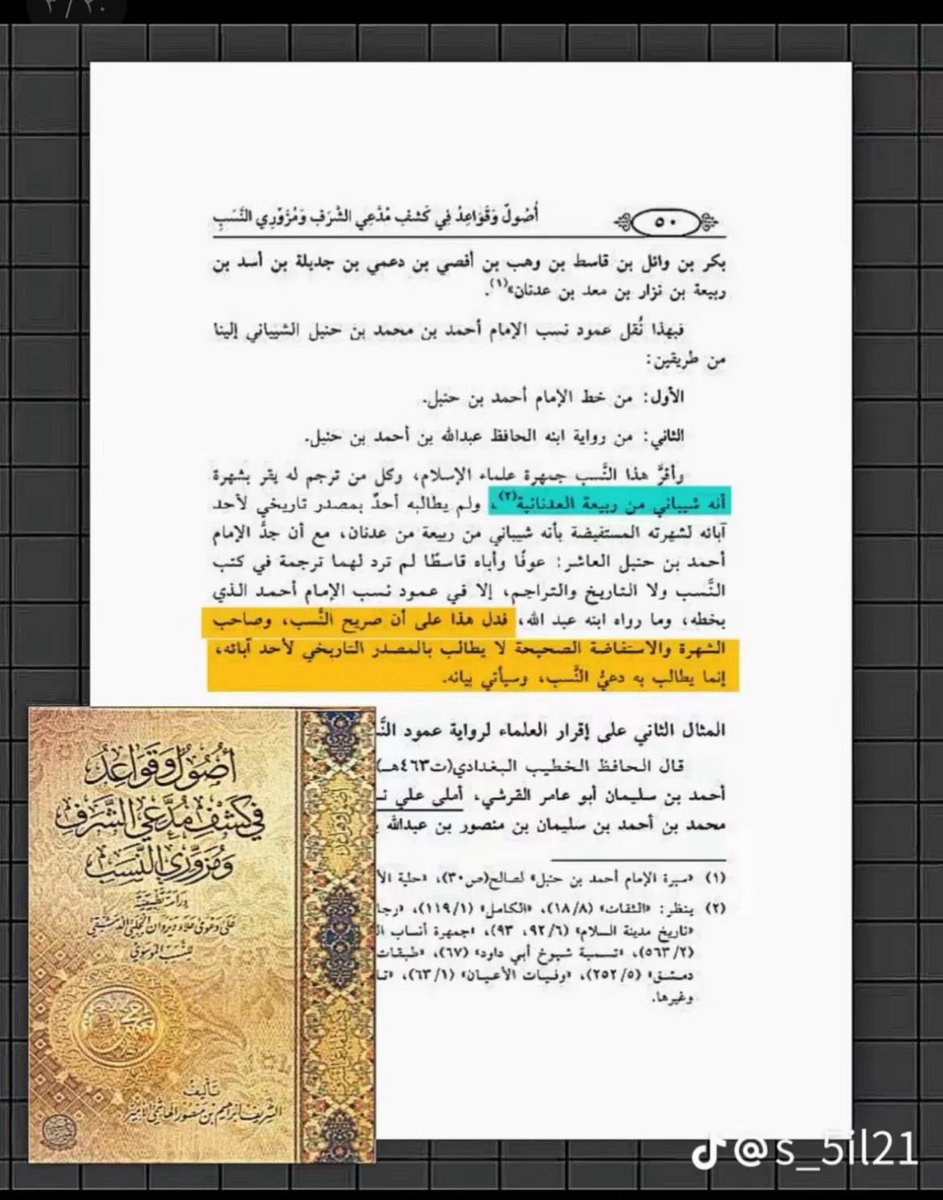 ٥٠
أُصُولٌ وَقَوَاعِدُ فِي كَشْفِ مُدَّعِي الشَّرَفِ وَمُزَوِّرِي النَّسَبِ
بكر بن وائل بن قاسط بن وهب بن أقصي بن دعمي بن جديلة بن أسد بن
ربيعة بن نزار بن معد بن عدنان»(١).
فبهذا نُقل عمود نسب الإمام أحمد بن محمد بن حنبل الشيباني إلينا
من طريقين:
الأول: من خط الإمام أحمد بن حنبل.
الثاني: من رواية ابنه الحافظ عبدالله بن أحمد بن حنبل.
وأقرَّ هذا النَّسب جمهرة علماء الإسلام، وكل من ترجم له يقر بشهرة
أنه شيباني من ربيعة العدنانية(٢)، ولم يطالبه أحدٌ بمصدر تاريخي لأحد
آبائه لشهرته المستفيضة بأنه شيباني من ربيعة من عدنان، مع أن جدَّ الإمام
أحمد بن حنبل العاشر: عوفًا وأباه قاسطًا لم ترد لهما ترجمة في كتب
النَّسب ولا التاريخ والتراجم، إلا في عمود نسب الإمام أحمد الذي
بخطه، وما رواه ابنه عبد الله، فدل هذا على أن صريح النَّسب، وصاحب
الشهرة والاستفاضة الصحيحة لا يطالب بالمصدر التاريخي لأحد آبائه،
إنما يطالب به دعيُّ النَّسب، وسيأتي بيانه.
المثال الثاني على إقرار العلماء لرواية عمود
قال الحافظ الخطيب البغدادي(ت٤٦٣هـ)
أحمد بن سليمان أبو عامر القرشي، أملى علي
محمد بن أحمد بن سليمان بن منصور بن عبدالله
(١) «سيرة الإمام أحمد بن حنبل» لصالح(ص٣٠)، «حلية
(٢) ينظر: «الثقات» (١٨/٨)، «الكامل» (١١٩/١)،
«تاريخ مدينة السلام» (٩٢/٦، ٩٣)، «جمهرة أنساب
(٥٦٣/٢)، «تسمية شيوخ أبي داود» (٦٧)، «طبقات
دمشق» (٢٥٢/٥)، «وفيات الأعيان» (٦٣/١)،
وغيرها.
أصول وقواعد
في كشف مدعي الشرف
ومزوري النسب
دراسة تطبيقية
للنسب الموسوي
تأليف
الشريف إبراهيم بن منصور الهاشمي الأمير
@s_5il21